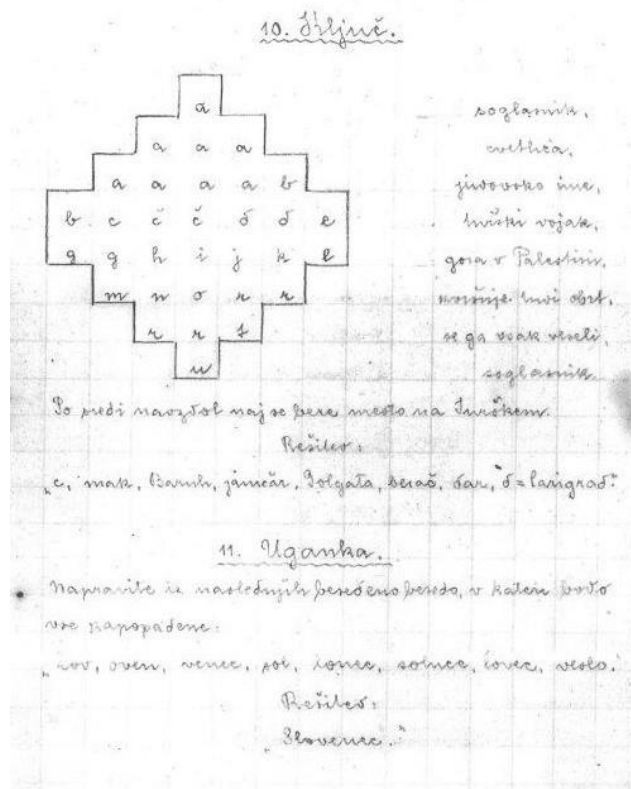 10. Ključ.
a soglasnik,
a a a cvetlica,
a a a a b judovsko ime,
b c č č d d e turški vojak,
g g h i j k l gora v Palestini,
m n o r r tudi obrt,
r r t se ga vsak veseli,
u soglasnik.
Po sredi navzdol naj se bere mesto na Turškem.
Rešitev:
„c, mak, Baruh, janičar, Golgata, berač, dar, d = Carigrad."
11. Uganka.
Napravite iz naslednjih besed eno besedo, v kateri bodo
vse zapopadene:
„lov, oven, venec, sol, lonec, solnce, lovec, veslo."
Rešitev:
„Slovenec."